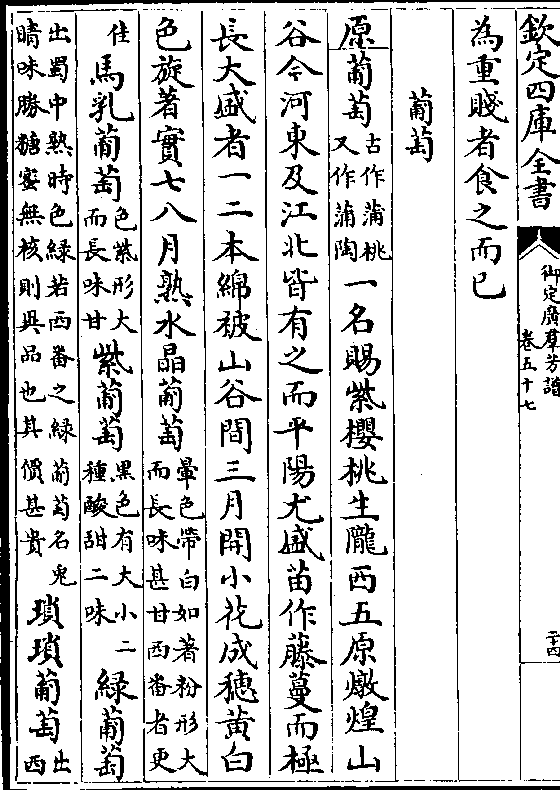 欽定四庫全書
御定廣羣芳譜
卷五十七
二十四
為重賤者食之而已
葡萄
原葡萄古作蒲桃又作蒲陶一名賜紫櫻桃生隴西五原燉煌山
谷今河東及江北皆有之而平陽尤盛苗作藤蔓而極
長大盛者一二本綿被山谷間三月開小花成穗黃白
色旋著實七八月熟水晶葡萄暈色帶白如著粉形大而長味甚甘西番者更
佳馬乳葡萄色紫形大而長味甘紫葡萄黑色有大小二種酸甜二味綠葡萄
出蜀中熟時色綠若西番之綠葡萄名兔睛味勝糖蜜無核則異品也其價甚貴瑣瑣葡萄出西